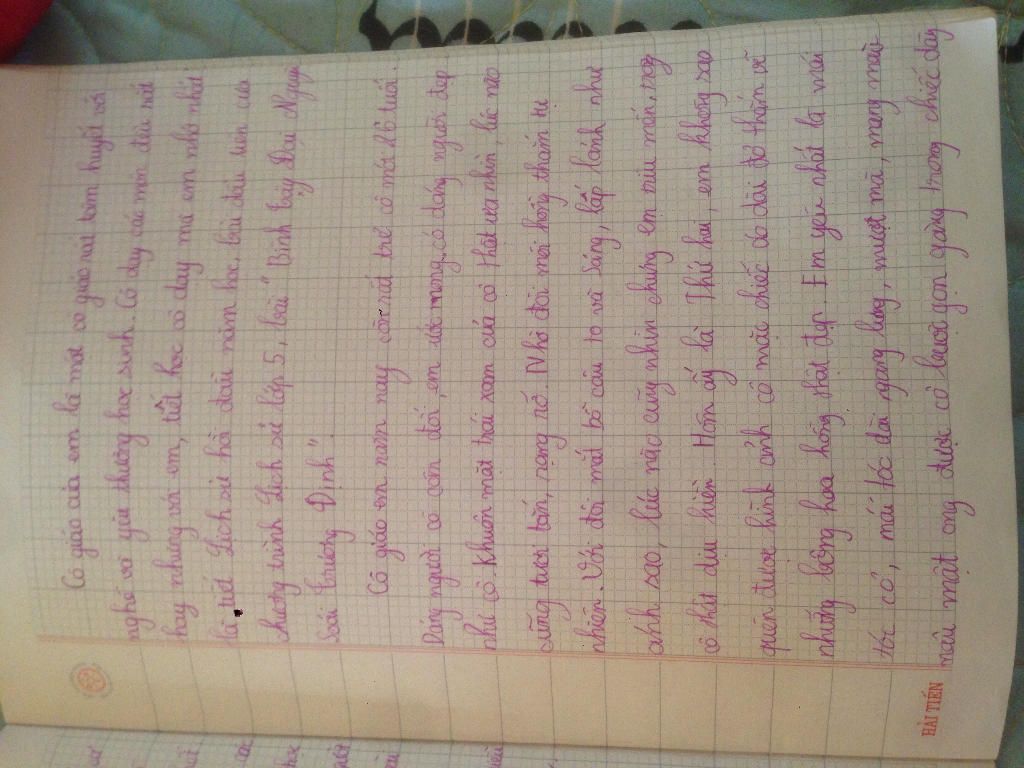 Cô giáo của em là một cô giáo rất tâm huyết với
nghề và yêu thương học sinh. Cô dạy các môn đều rất
hay nhưng với em, tiết học cô dạy mà em nhớ nhất
là tiết Lịch sử hồi đầu năm học, bài đầu tiên của
chương trình Lịch sử lớp 5, bài "Bình Tây Đại Nguyên
Soái Trương Định".
Cô giáo em năm nay còn rất trẻ cô mới 26 tuổi.
Dáng người cô cân đối, em ước mong có dáng người đẹp
như cô. Khuôn mặt trái xoan của cô thật ưa nhìn, lúc nào
cũng tươi tắn, rạng rỡ. Nhờ đôi môi hồng thắm tự
nhiên. Với đôi mắt bồ câu to và sáng, lấp lánh như
ánh sao, lúc nào cũng nhìn chúng em trìu mến, trông
cô thật dịu hiền. Hôm ấy là Thứ hai, em không sao
quên được hình ảnh cô mặc chiếc áo dài đỏ thắm với
những bông hoa hồng thật đẹp. Em yêu nhất là mái
tóc cô, mái tóc dài ngang lưng, mượt mà, mang màu
nâu mật ong được cô buộc gọn gàng trong chiếc dây
HẢI TIẾN